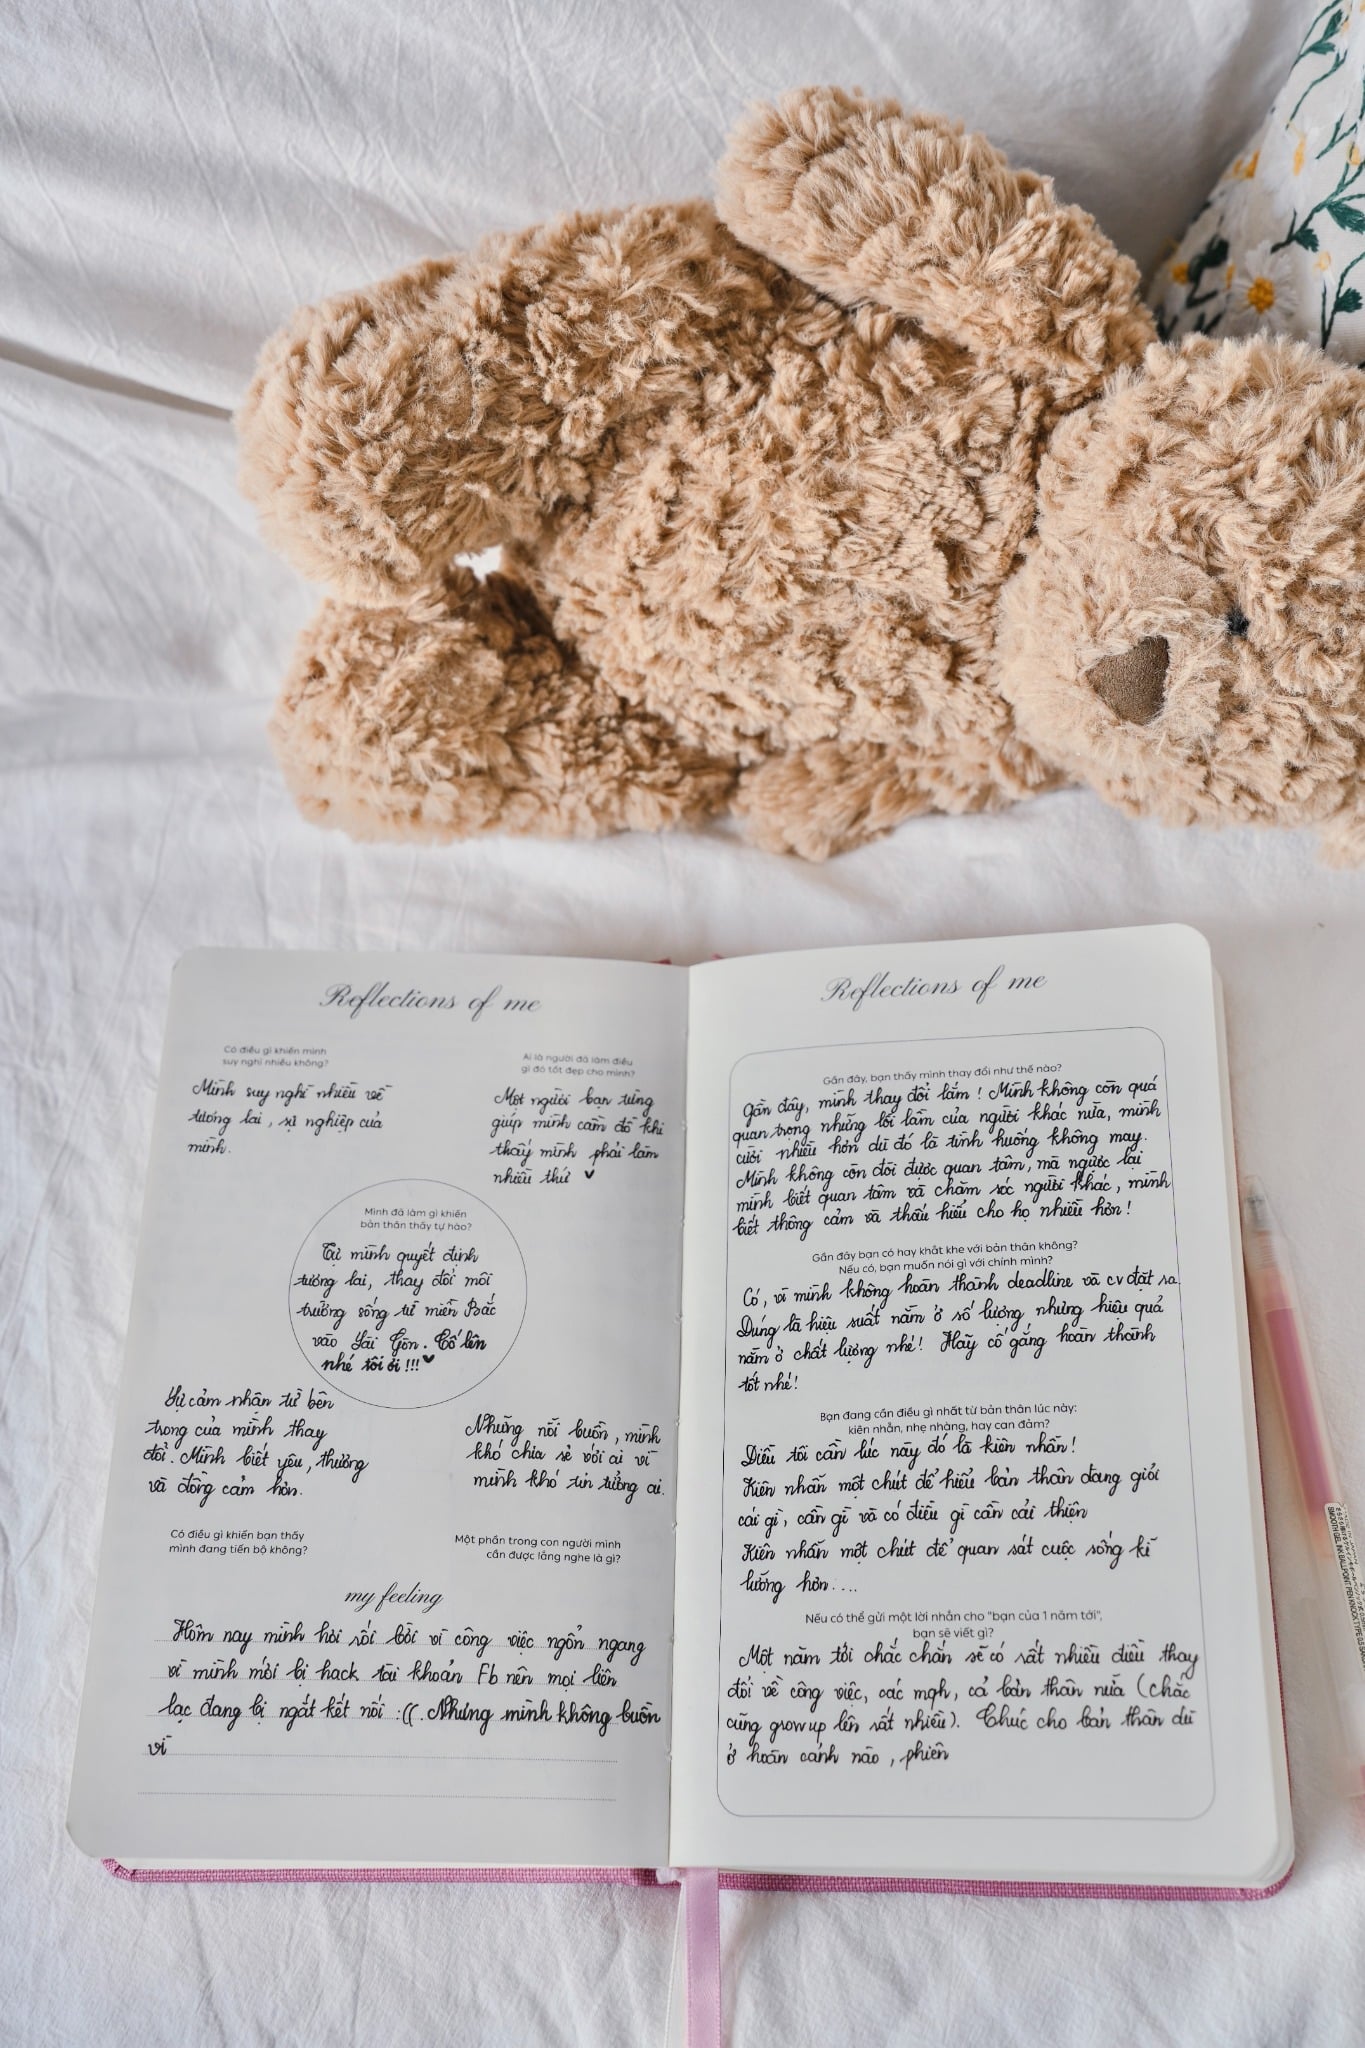 Reflections of me
Có điều gì khiến mình
suy nghĩ nhiều không?
Mình suy nghĩ nhiều về
tương lai, sự nghiệp của
mình.
Ai là người đã làm điều
gì đó tốt đẹp cho mình?
Một người bạn từng
giúp mình cầm đồ khi
thấy mình phải làm
nhiều thứ ♥
Mình đã làm gì khiến
bản thân thấy tự hào?
Tự mình quyết định
tương lai, thay đổi môi
trường sống từ miền Bắc
vào Sài Gòn. Cố lên
nhé tôi ơi !!! ♥
Sự cảm nhận từ bên
trong của mình thay
đổi. Mình biết yêu, thương
và đồng cảm hơn.
Có điều gì khiến bạn thấy
mình đang tiến bộ không?
Những nỗi buồn, mình
khó chia sẻ với ai vì
mình khó tin tưởng ai.
Một phần trong con người mình
cần được lắng nghe là gì?
my feeling
Hôm nay mình hơi rối bời vì công việc ngổn ngang
vì mình mới bị hack tài khoản Fb nên mọi liên
lạc đang bị ngắt kết nối :((. Nhưng mình không buồn
vì
Reflections of me
Gần đây, bạn thấy mình thay đổi như thế nào?
Gần đây, mình thay đổi lắm! Mình không còn quá
quan trọng những lỗi lầm của người khác nữa, mình
cười nhiều hơn dù đó là tình huống không may.
Mình không còn đòi được quan tâm, mà ngược lại
mình biết quan tâm và chăm sóc người khác, mình
biết thông cảm và thấu hiểu cho họ nhiều hơn!
Gần đây bạn có hay khắt khe với bản thân không?
Nếu có, bạn muốn nói gì với chính mình?
Có, vì mình không hoàn thành deadline và cv đặt ra.
Đúng là hiệu suất nằm ở số lượng nhưng hiệu quả
nằm ở chất lượng nhé! Hãy cố gắng hoàn thành
tốt nhé!
Bạn đang cần điều gì nhất từ bản thân lúc này:
kiên nhẫn, nhẹ nhàng, hay can đảm?
Điều tôi cần lúc này đó là kiên nhẫn!
Kiên nhẫn một chút để hiểu bản thân đang giỏi
cái gì, cần gì và có điều gì cần cải thiện
Kiên nhẫn một chút để quan sát cuộc sống kĩ
lưỡng hơn....
Nếu có thể gửi một lời nhắn cho "bạn của 1 năm tới",
bạn sẽ viết gì?
Một năm tới chắc chắn sẽ có rất nhiều điều thay
đổi về công việc, các mqh, cả bản thân nữa (chắc
cũng grow up lên rất nhiều). Chúc cho bản thân dù
ở hoàn cảnh nào, phiên